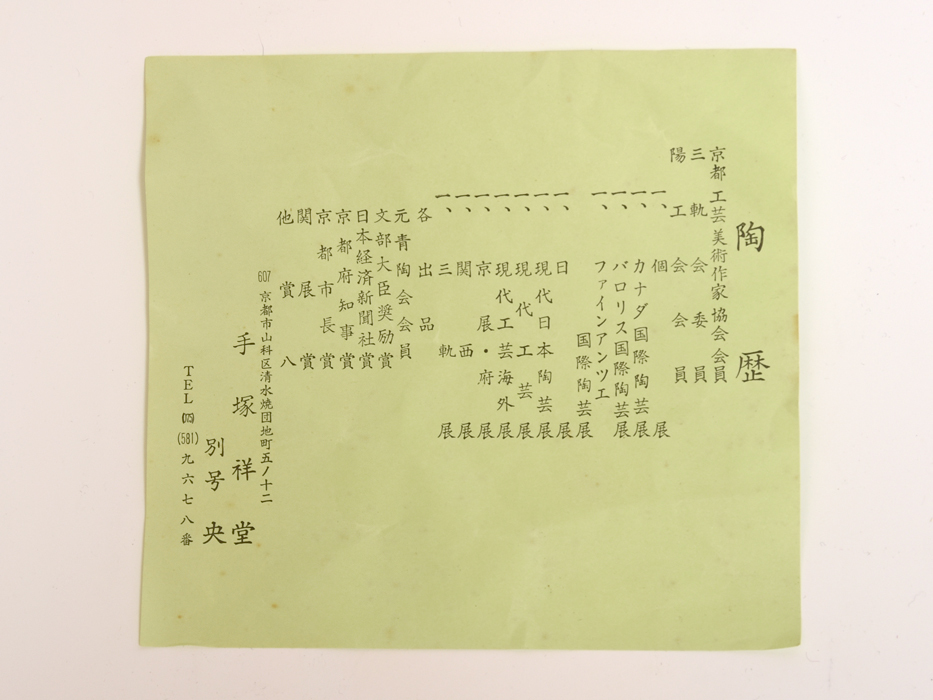 陶歴
京都工芸美術作家協会会員
三軌会委員
陽工会会員
一、個展
一、カナダ国際陶芸展
一、バロリス国際陶芸展
一、ファインアンツエ
国際陶芸展
一、日展
一、現代日本陶芸展
一、現代工芸展
一、現代工芸海外展
一、京展・府展
一、関西展
一、三軌展
各出品
元青陶会会員
文部大臣奨励賞
日本経済新聞社賞
京都府知事賞
京都市長賞
関展賞
他賞八
607 京都市山科区清水焼団地町五ノ十二
手塚祥堂
別号央
TEL (075) (581) 九六七八番